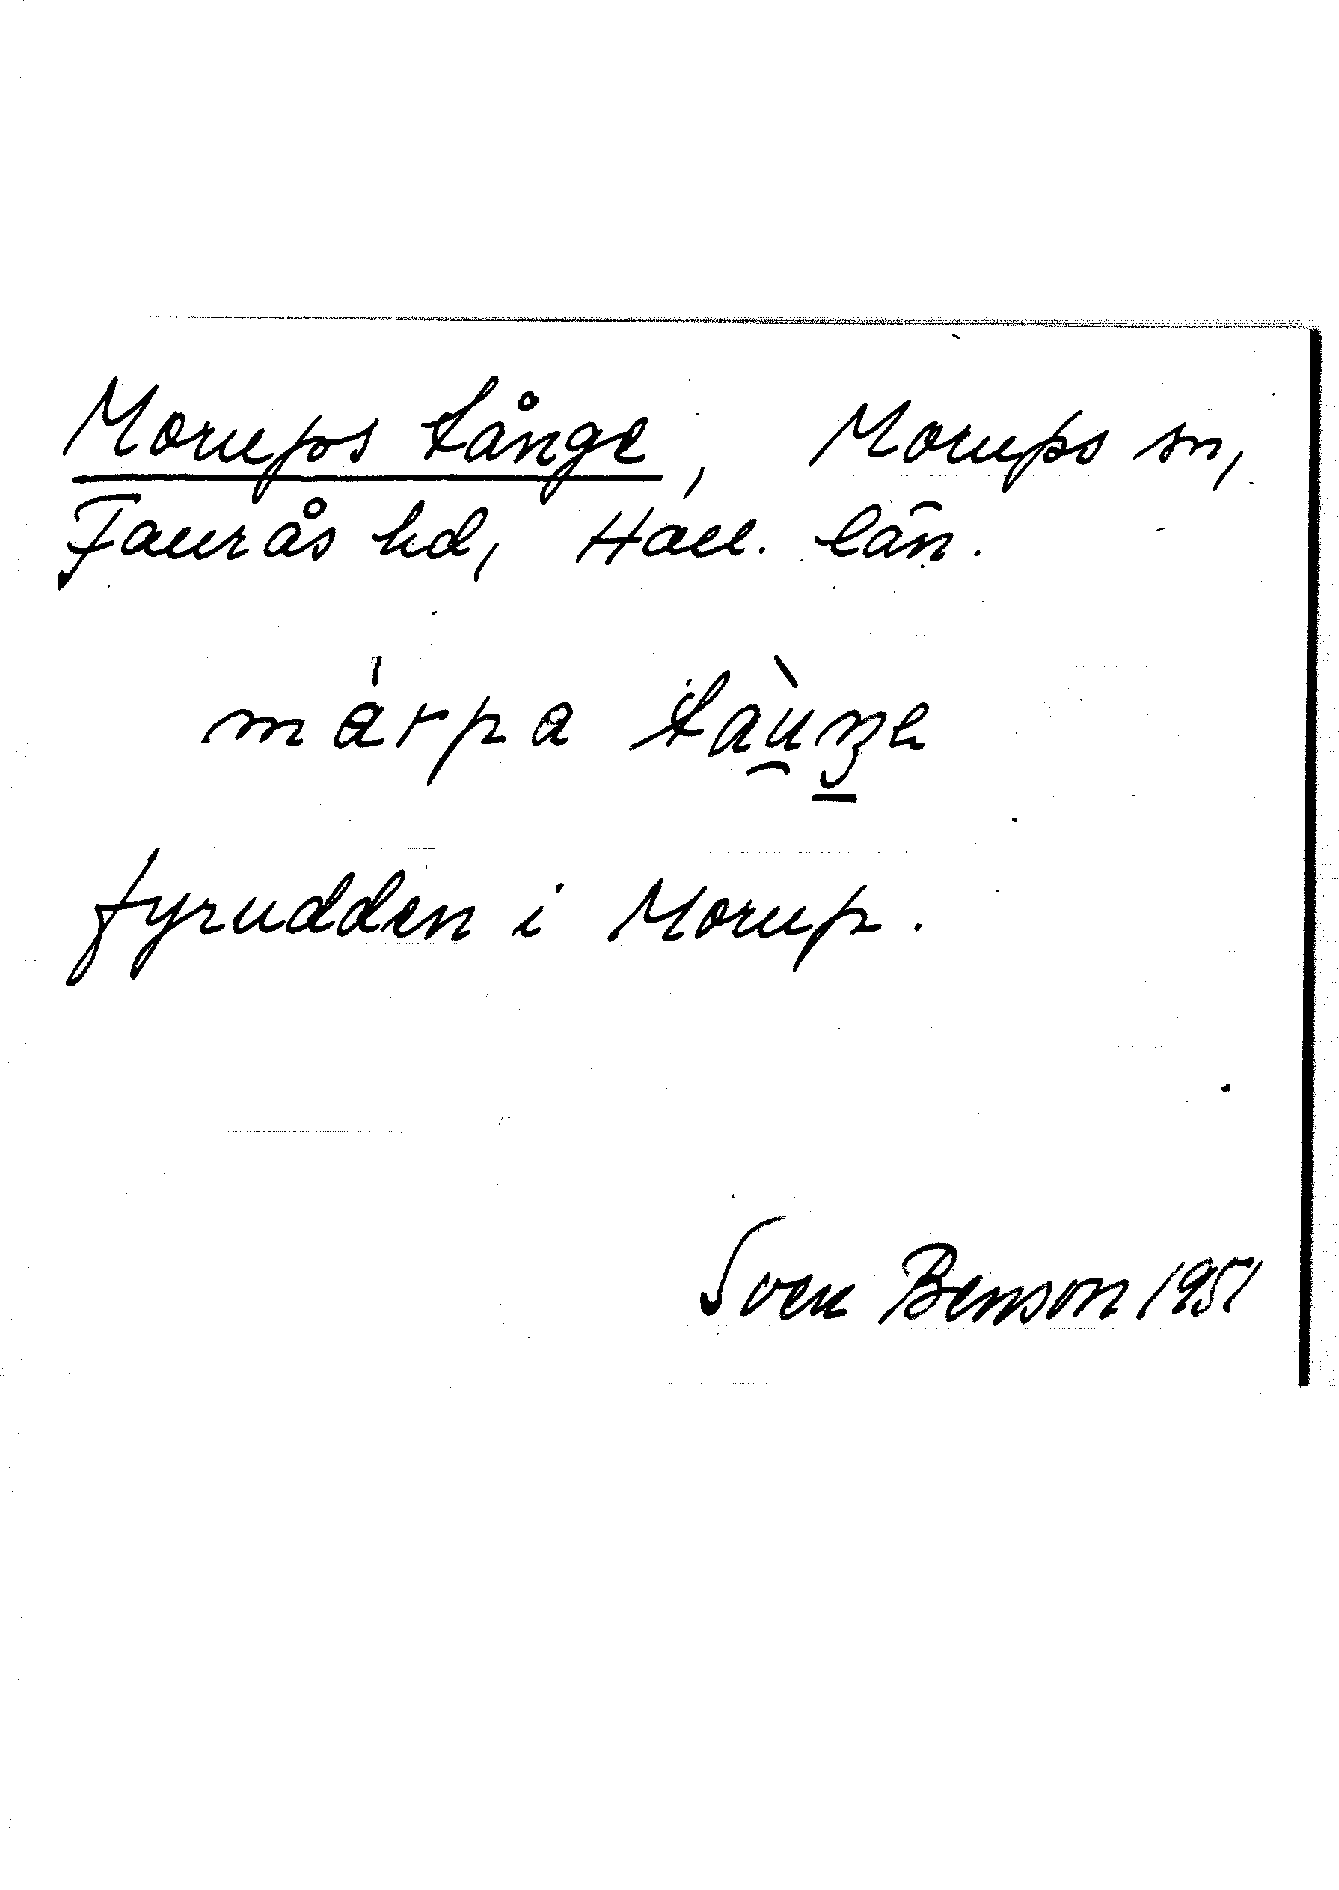 Morups tånge, Morups sn,
Faurås hd, Hall. län.
márpa tàu̯ŋa
fyrudden i Morup.
Sven Benson 1951